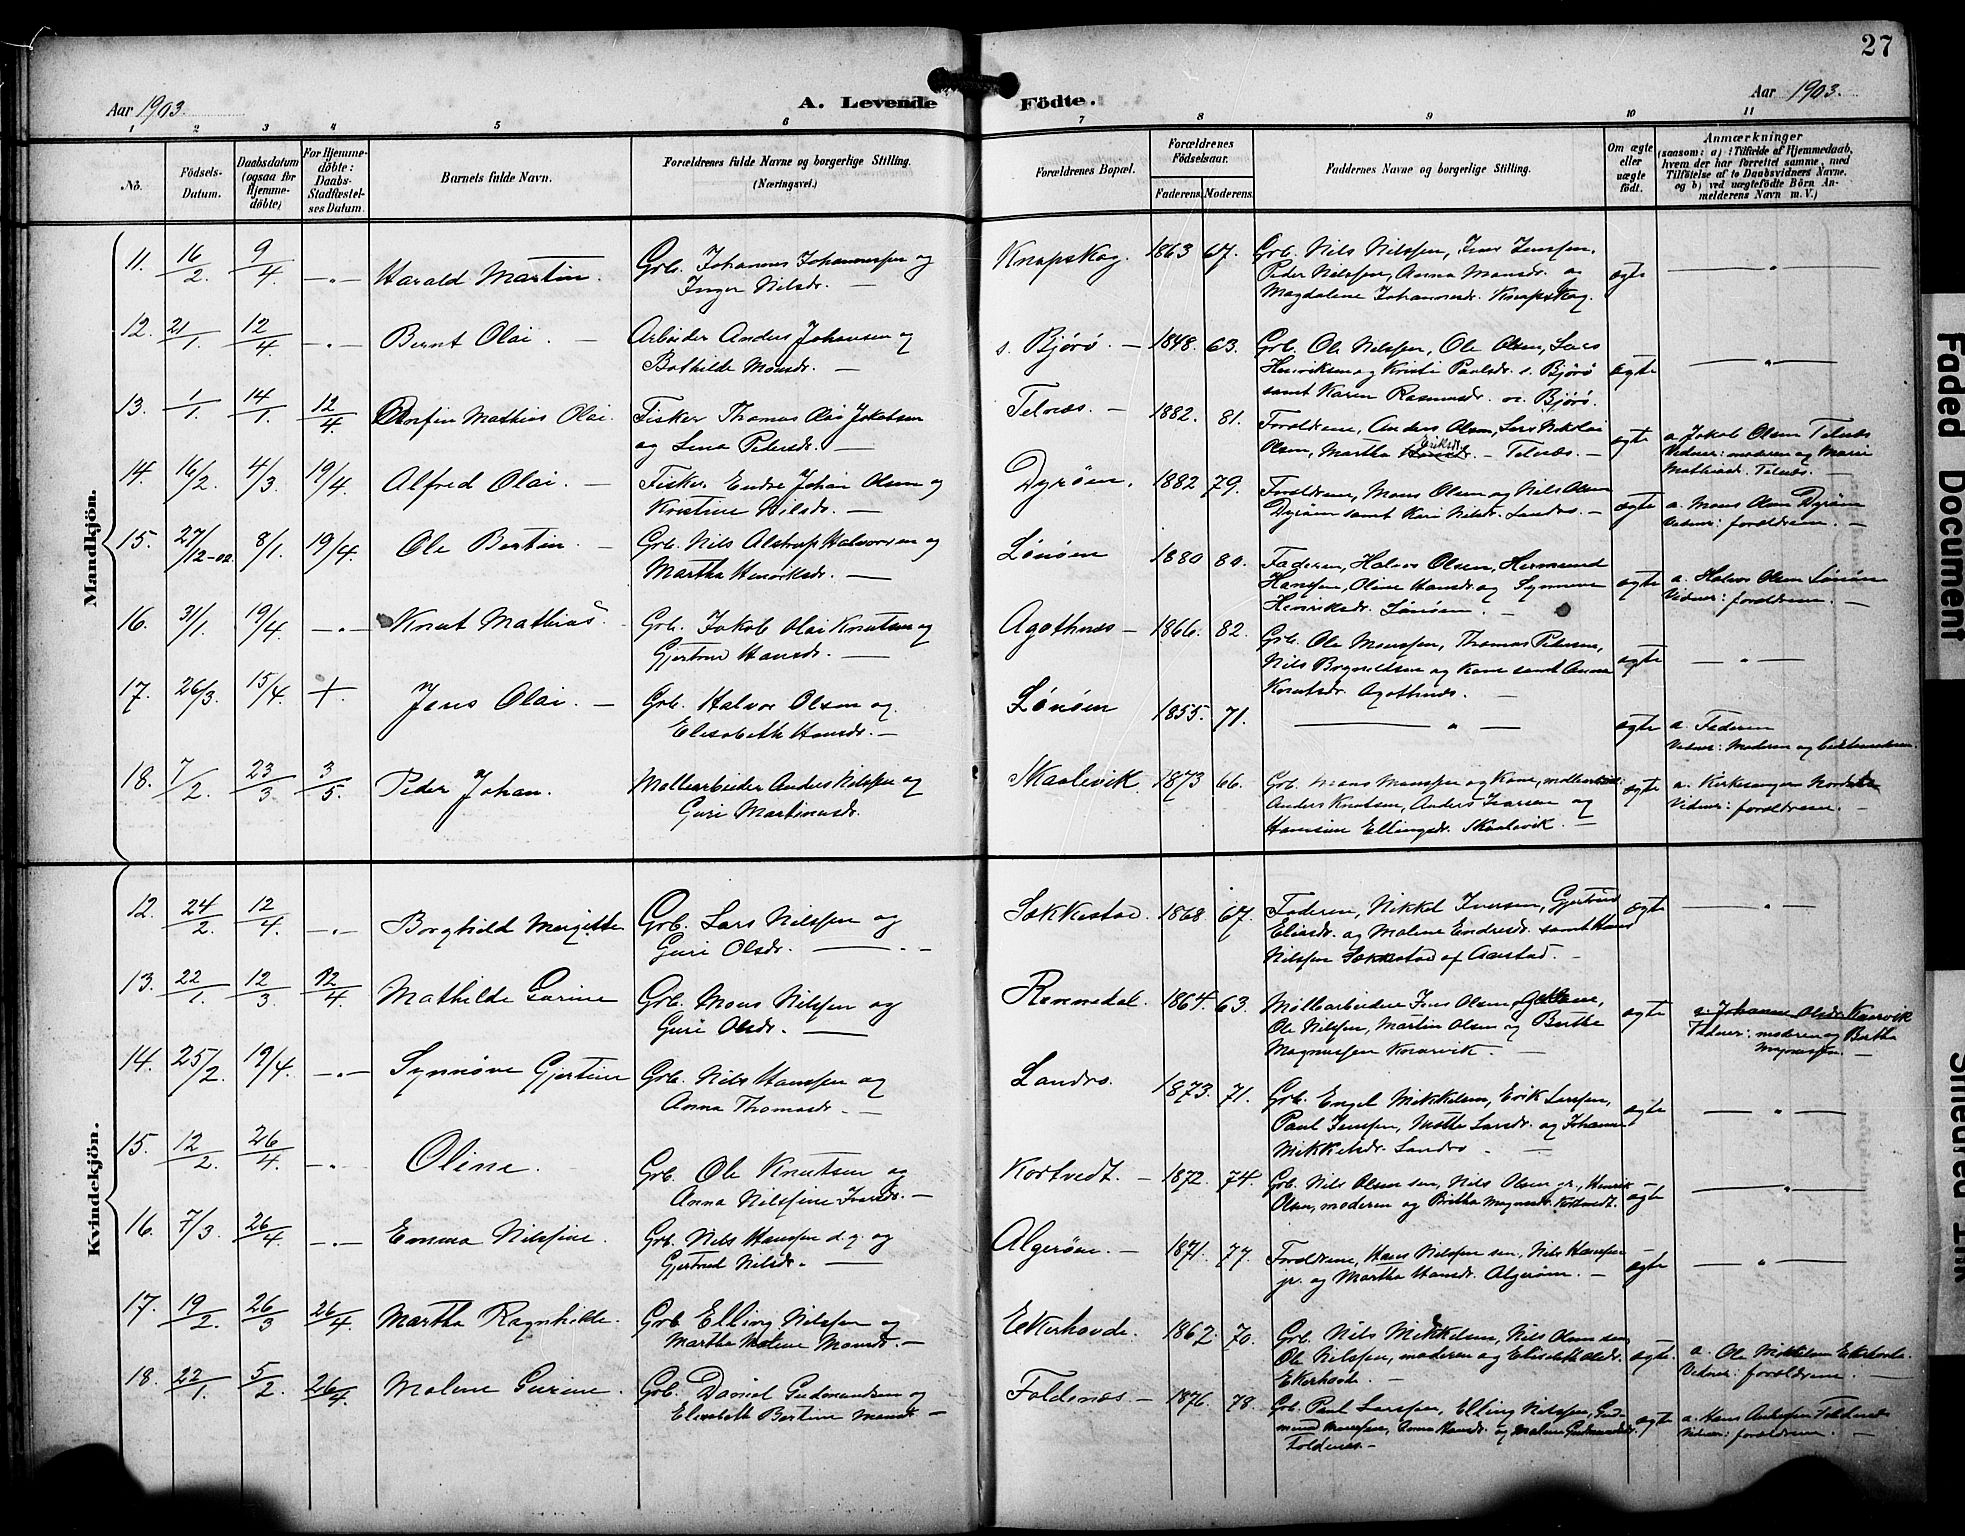 27
Aar 1903.
A. Levende Födte.
Aar 1903.
1 2 3 4 5 6 7 8 9 10 11
No.
Födsels-Datum.
Daabsdatum (ogsaa for Hjemme-döbte)
For Hjemme-döbte: Daabs-Stadfæstel-ses Datum.
Barnets fulde Navn.
Forældrenes fulde Navne og borgerlige Stilling.
(Næringsvei.)
Forældrenes Bopæl.
Forældrenes Födselsaar.
Faderens. Moderens.
Faddernes Navne og borgerlige Stilling.
Om ægte eller uægte födt.
Anmærkninger
(saasom: a) i Tilfælde af Hjemmedaab,
hvem der har forrettet samme, med
Tilföielse af to Daabsvidners Navne.
og b) ved uægtefödte Börn An-
melderens Navn m. V.)
Mandkjön.
11. 16/2 9/4 -"- Harald Martin. Grb. Johannes Johannessen og
Inger Nilsdr. —
Knapskog. 1863 67. Grb. Nils Nilssen, Jens Jenssen,
Peder Nilssen, Anna Monsdr. og
Magdalene Johannesdr. Knapskog.
ægte — " —
12. 21/1. 12/4. -"- Bernt Olai. — Arbeider Anders Johansen og
Bothilde Monsdr. —
s. Bjørø. — 1848. 63. Grb. Ole Nilssen, Ole Olsen, Lars
Henriksen og Kristi Paulsdr. s. Bjørø
samt Karen Rasmusdr. Bjørø.
ægte — " —
13. 1/1. 14/1. 12/4. Mathias Olai. Fisker Thomas Olai Jakobsen
og Lena Pedersdr. —
Telnæs. — 1882. 81. Forældrene, Anders Olsen, Lars Nikolai
Olsen, Martha Eriksdr. — Telnæs. —
ægte a. Jakob Olsen Telnæs
Vidner: moderen og Marie
Mathisdr. Telnæs. —
14. 16/2. 4/3. 19/4. Alfred Olai. — Fisker Endre Johan Olsen og
Kristine Nilsdr. —
Dyrøen. 1882 79. Forældrene, Mons Olsen og Nils Olsen
Dyrøen samt Kari Nilsdr. Landro. —
ægte a. Mons Olsen Dyrøen
Vidner: forældrene. —
15. 27/12-02 8/1. 19/4. Ole Bertin. — Grb. Nils Alstrup Halvorsen og
Martha Henriksdr. —
Lønøen 1880 80. Faderen, Halvor Olsen, Hermund
Hanssen, Oline Hansdr. og Synneve
Henriksdr. Lønøen. —
ægte a. Halvor Olsen Lønøen
Vidner: forældrene. —
16. 31/1. 19/4. -"- Knut Mathias. Grb. Jakob Olai Knutsen og
Gjertrud Hansdr. —
Agothnes — 1866. 82. Grb. Ole Monssen, Thomas Pedersen,
Nils Brynildsen og Kone samt Anna
Knutsdr. Agothnes. —
ægte — " —
17. 26/3. 15/4. + Jens Olai. — Grb. Halvor Olsen og
Elisabeth Hansdr. —
Lønøen 1855. 71. — " —
ægte a. Faderen
Vidner: Moderen og
18. 7/2. 23/3 3/5. Peder Johan. Møllearbeider Anders Nilssen og
Guri Martinusdr.
Skaalevik 1873 66. Grb. Mons Monssen og Kone,
Anders Knutsen, Anders Ivarsen og
Ellingsdr. Skaalevik. —
ægte a. Kirkesanger
Vidner: forældrene. —
Kvindekjön.
12. 24/2. 12/4. -"- Borghild Mergitthe Grb. Lars Nilssen og
Guri Olsdr. —
Søkkestad. 1868. 67. Faderen, Nikkel Iversen, Gjertrud
Eliasdr. og Malene Endresdr. samt Hans
Nilssen Søkkestad af Aarstad. —
ægte — " —
13. 22/1. 12/3. 12/4. Mathilde Gurine Grb. Mons Nilssen og
Guri Olsdr. —
Rammedal. 1864. 63. Møllearbeidere Jens Olsen,
Ole Nilssen, Martin Olsen og Berthe
Magnussen Kaarvik. —
ægte a. Johanne Olsdr. Kaarvik
Vidner: moderen og Bertha
Magnussen. —
14. 25/2. 19/4. -"- Synnøve Gjertine Grb. Nils Hanssen og
Anna Thomasdr. —
Landro. 1873. 71. Grb. Engel Mikkelsen, Erik Larssen,
Paul Jenssen, Mette Larsdr. og Johanne
Mikkelsdr. Landro. —
ægte — " —
15. 12/2. 26/4. -"- Oline. Grb. Ole Knutsen og
Anna Nilssine Ivarsdr. —
Kortvedt. — 1872. 74. Grb. Nils Olsen sen, Nils Olsen jr., Henrik
Olsen, moderen og Brithe Magnesdr. Kortvedt.
ægte — " —
16. 7/3. 26/4. -"- Emma Nilssine. Grb. Nils Hanssen d. y. og
Gjertrud Nilsdr. —
Algerøen. — 1871. 77. Forældrene, Hans Nilssen sen, Nils Hanssen
jr. og Martha Hansdr. Algerøen. —
ægte — " —
17. 19/2. 26/3 26/4. Martha Ragnhilde. Grb. Elling Nilssen og
Martha Malene Monsdr. —
Ekerhovde. 1862. 70. Grb. Nils Mikkelsen, Nils Olsen sen,
Ole Nilssen, moderen og Elisabeth Olsdr.
Ekerhovde. —
ægte. a. Ole Mikkelsen Ekerhovde.
Vidner: forældrene. —
18. 22/1. 5/2. 26/4. Malene Gurine. Grb. Daniel Gudmundsen og
Elisabeth Bertine Monsdr. —
Foldenæs — 1876. 78. Grb. Paul Larssen, Elling Nilssen, Gud-
mund Monssen, Anna Hansdr. og Malene Gudmundsdr.
Foldenæs. —
ægte a. Hans Foldenæs
Vidner: forældrene. —
Faded Document
Smeared Ink